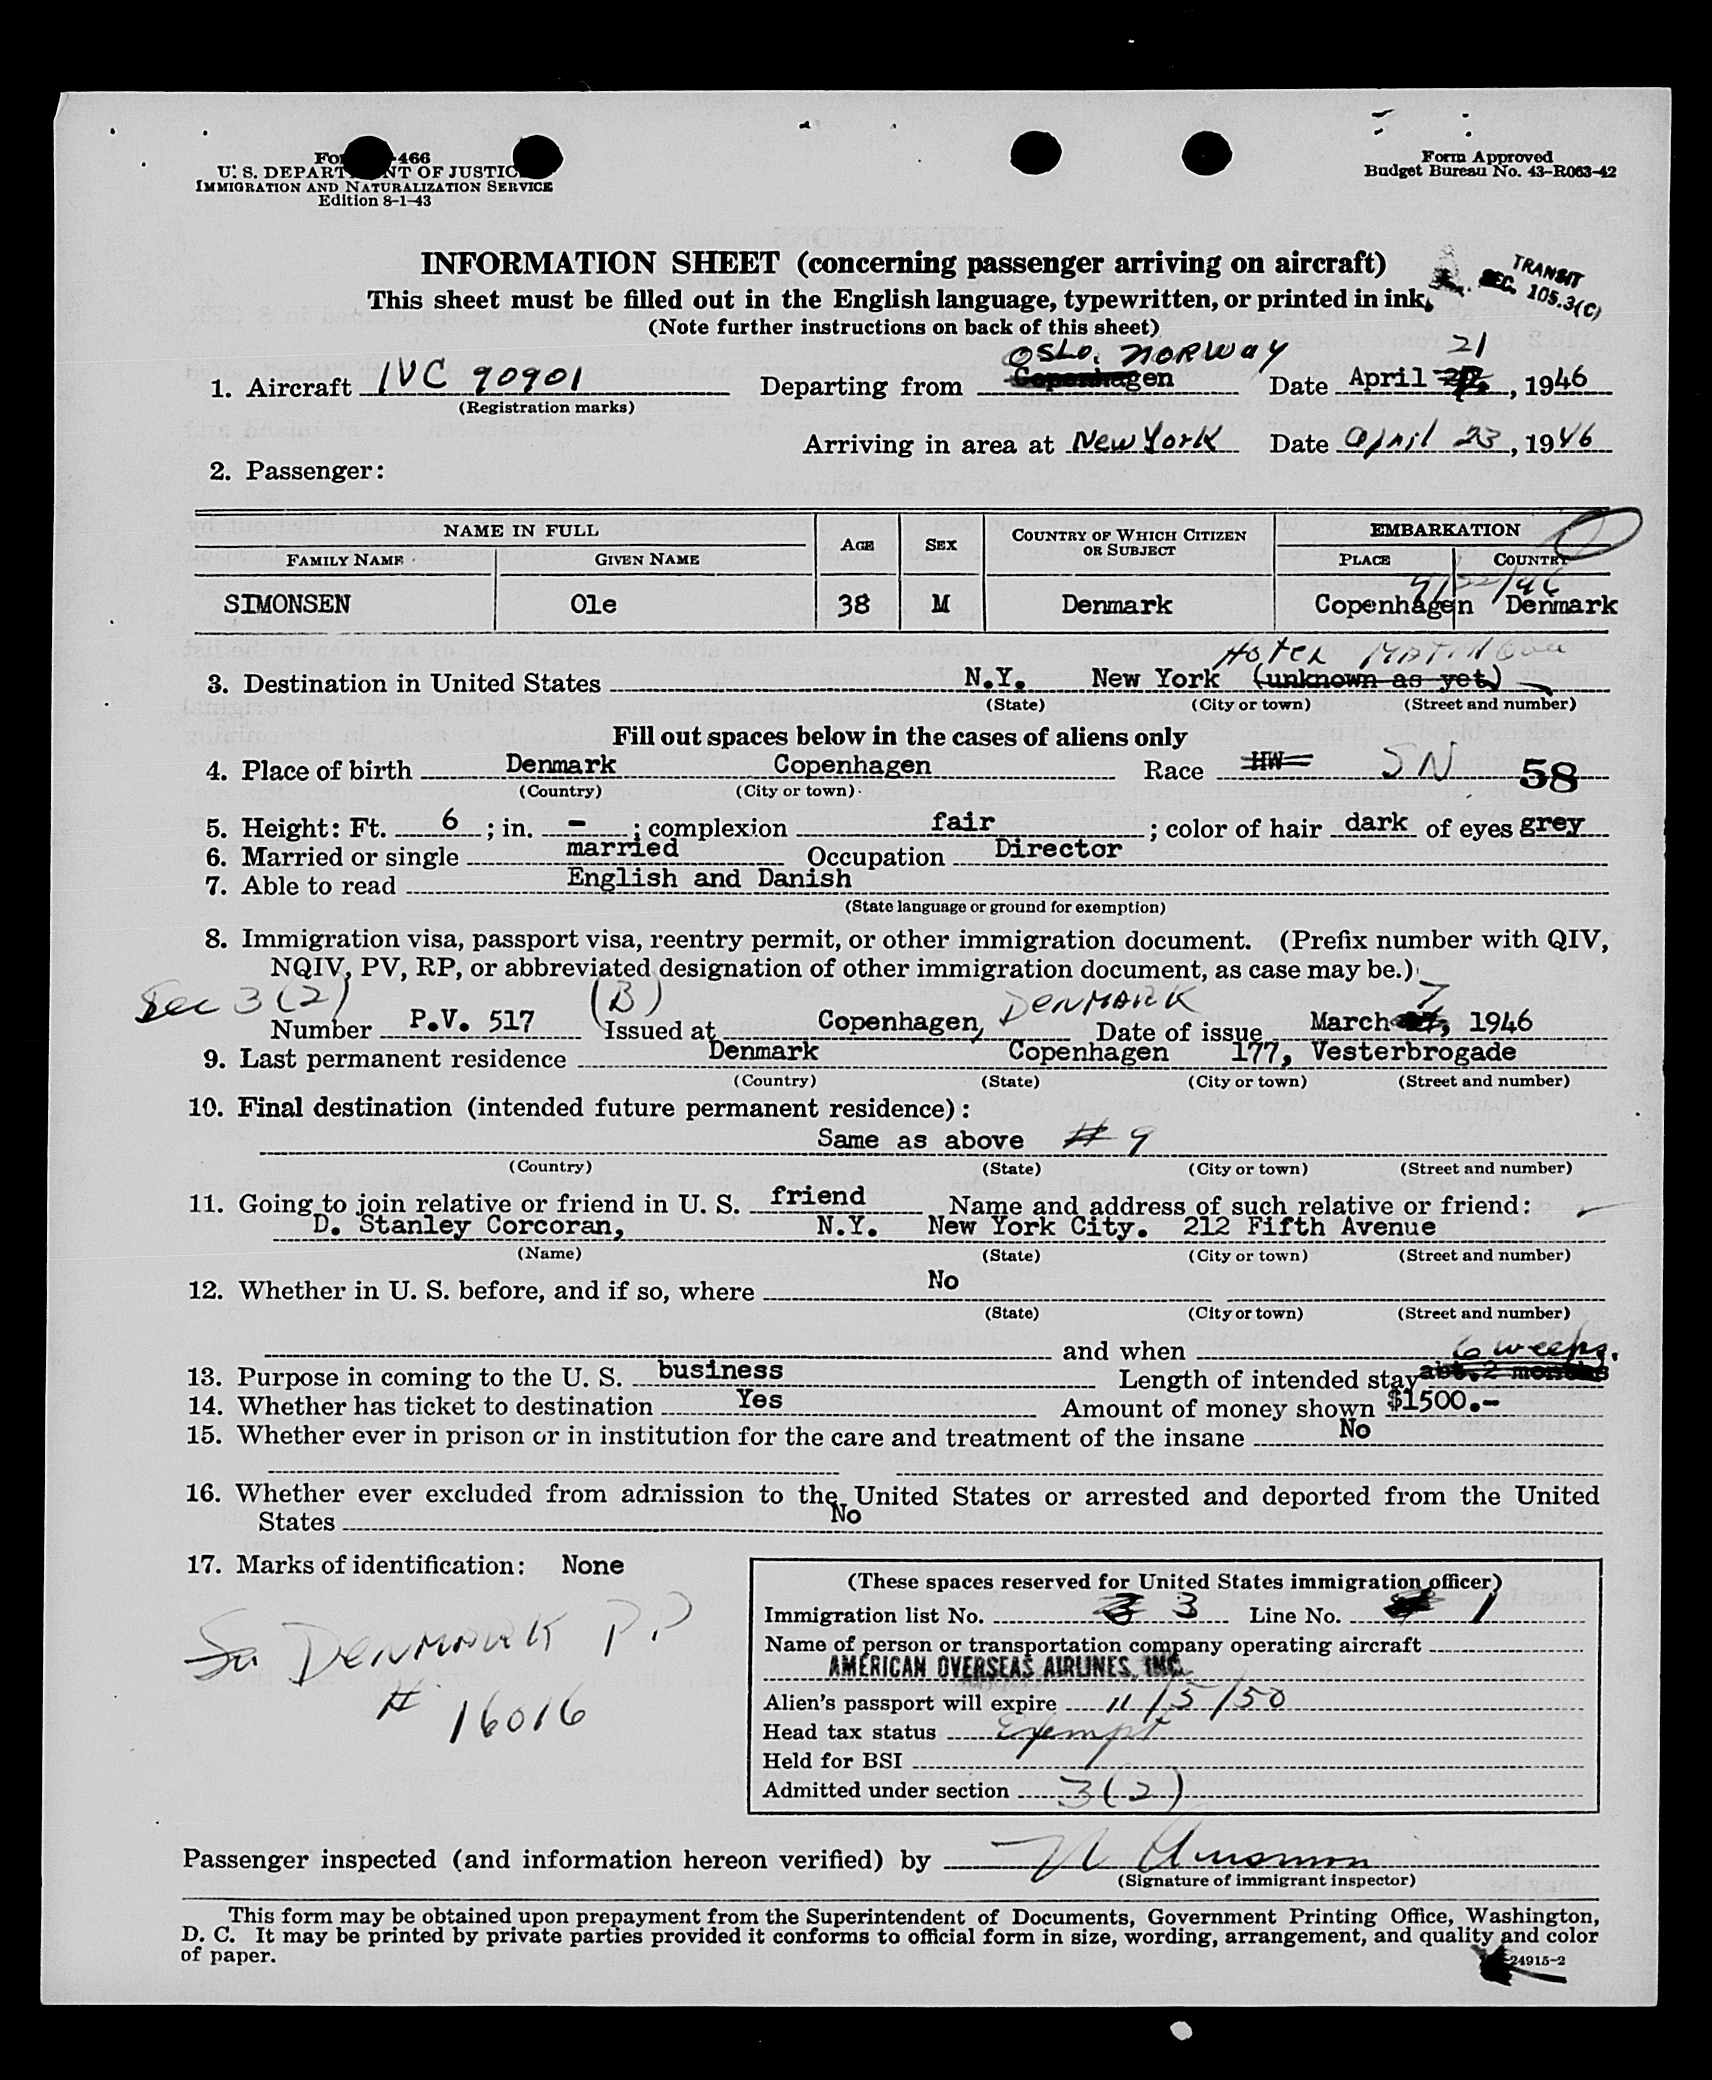 466
U. S. DEPART NT OF JUSTIC
IMMIGRATION AND NATURALIZATION SERVICE
Edition 8-1-43
Form Approved
Budget Bureau No. 43-R063-42
INFORMATION SHEET (concerning passenger arriving on aircraft)
TRANSIT
SEC. 105.3(C)
This sheet must be filled out in the English language, typewritten, or printed in ink.
(Note further instructions on back of this sheet)
OSLO, NORWAY 21
1. Aircraft IVC 90901 Departing from Copenhagen Date April , 1946
(Registration marks)
Arriving in area at New York Date April 23, 1946
2. Passenger:
NAME IN FULL AGE SEX COUNTRY OF WHICH CITIZEN OR SUBJECT EMBARKATION
FAMILY NAME GIVEN NAME PLACE COUNTRY
4/22/46
SIMONSEN Ole 38 M Denmark Copenhagen Denmark
HOTEL
3. Destination in United States N.Y. New York (unknown as yet)
(State) (City or town) (Street and number)
Fill out spaces below in the cases of aliens only
4. Place of birth Denmark Copenhagen Race HW SN 58
(Country) (City or town)
5. Height: Ft. 6 ; in. - ; complexion fair ; color of hair dark of eyes grey
6. Married or single married Occupation Director
7. Able to read English and Danish
(State language or ground for exemption)
8. Immigration visa, passport visa, reentry permit, or other immigration document. (Prefix number with QIV,
NQIV, PV, RP, or abbreviated designation of other immigration document, as case may be.)
Sec 3(2) (B) DENMARK 7
Number P.V. 517 Issued at Copenhagen, Date of issue March , 1946
9. Last permanent residence Denmark Copenhagen 177, Vesterbrogade
(Country) (State) (City or town) (Street and number)
10. Final destination (intended future permanent residence):
Same as above # 9
(Country) (State) (City or town) (Street and number)
11. Going to join relative or friend in U. S. friend Name and address of such relative or friend:
D. Stanley Corcoran, N.Y. New York City. 212 Fifth Avenue
(Name) (State) (City or town) (Street and number)
12. Whether in U. S. before, and if so, where No
(State) (City or town) (Street and number)
and when
6 weeks.
13. Purpose in coming to the U. S. business Length of intended stay abt. 2 months
14. Whether has ticket to destination Yes Amount of money shown $1500.-
15. Whether ever in prison or in institution for the care and treatment of the insane No
16. Whether ever excluded from admission to the United States or arrested and deported from the United
States No
17. Marks of identification: None
DENMARK P.P
# 16016
(These spaces reserved for United States immigration officer)
Immigration list No. 3 3 Line No. 1
Name of person or transportation company operating aircraft
AMERICAN OVERSEAS AIRLINES, INC.
Alien's passport will expire 11/5/50
Head tax status Exempt
Held for BSI
Admitted under section 3(2)
Passenger inspected (and information hereon verified) by
(Signature of immigrant inspector)
This form may be obtained upon prepayment from the Superintendent of Documents, Government Printing Office, Washington,
D. C. It may be printed by private parties provided it conforms to official form in size, wording, arrangement, and quality and color
of paper.
24915-2